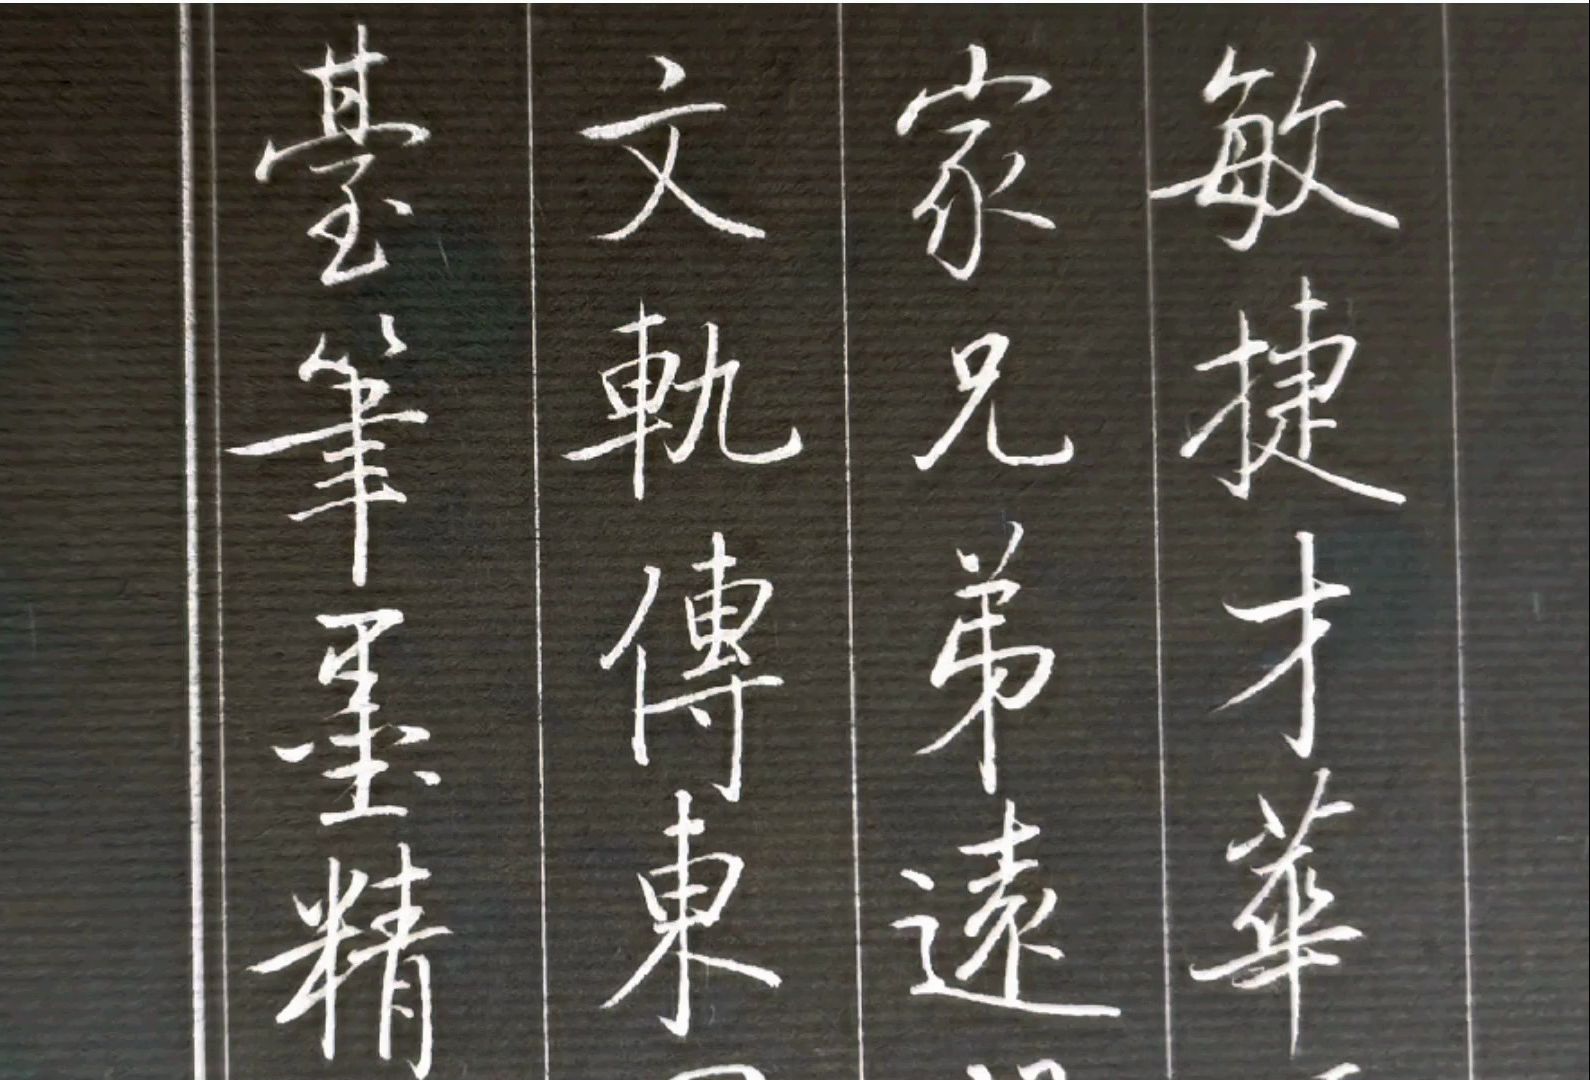 敏捷才華
家兄弟遠
文軌傳東
臺筆墨精